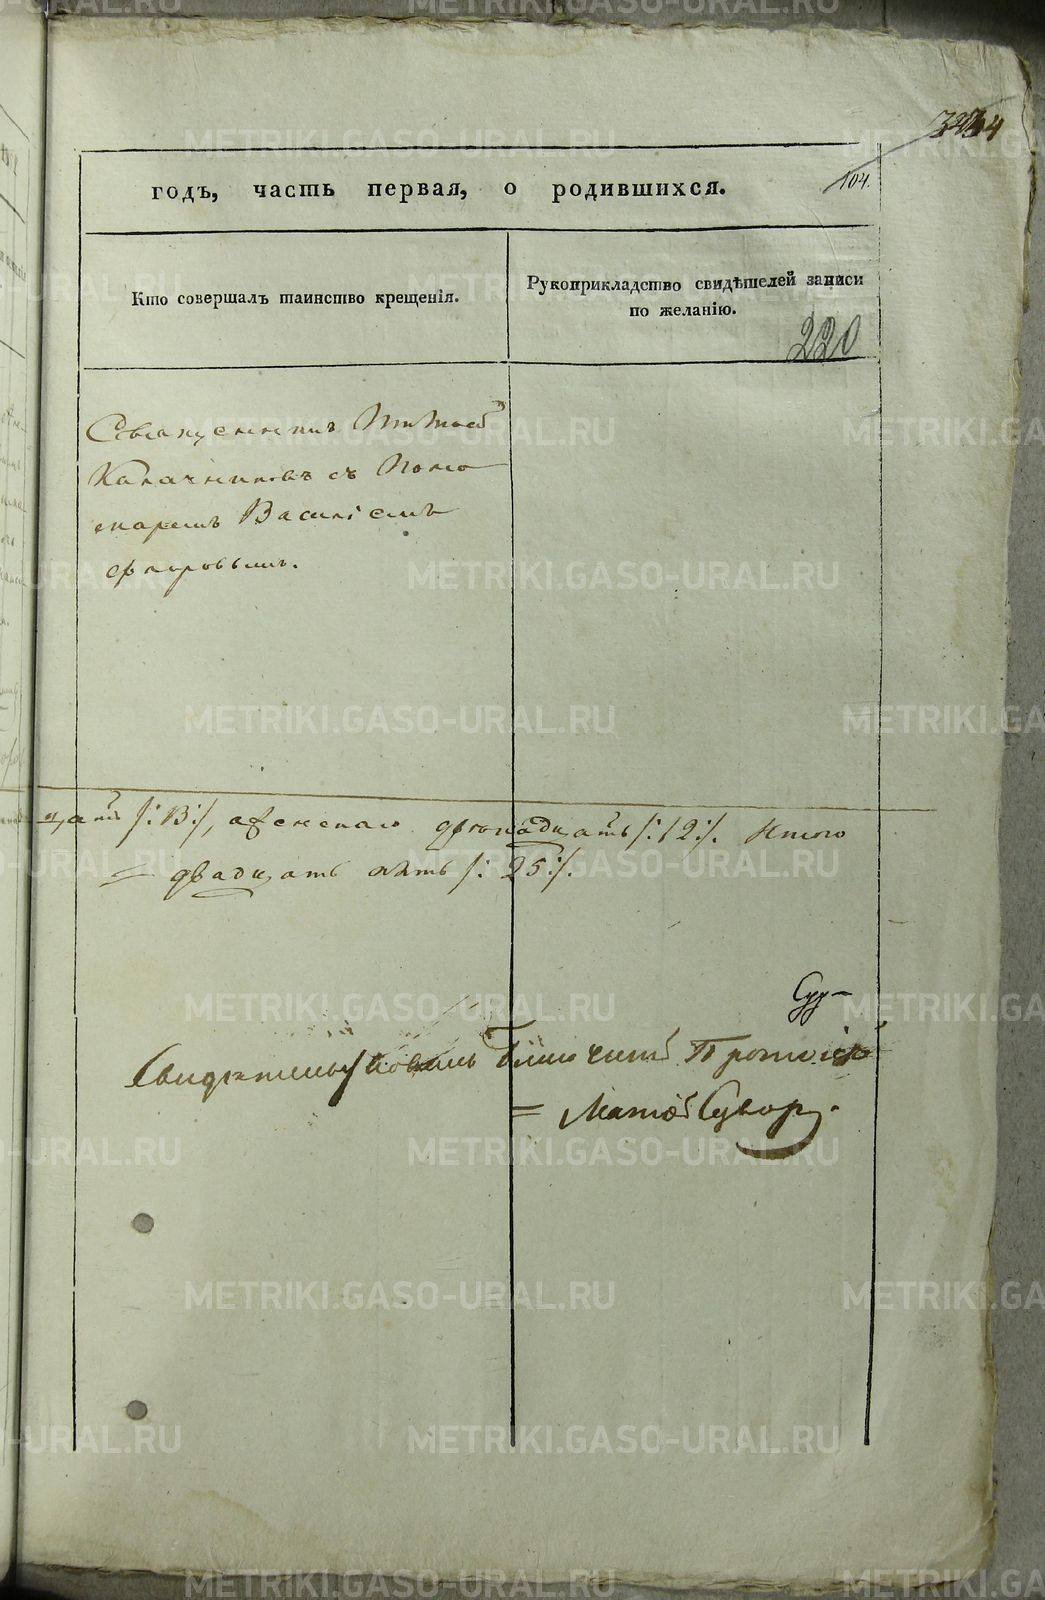 104.
годъ, часть первая, о родившихся.
Кто совершалъ таинство крещенія.
Рукоприкладство свидѣтелей записи
по желанію.
220
Священникъ
Калачниковъ съ Поно
маремъ Василіемъ
цать /:13:/, а женскаго двѣнадцать /:12:/. Итого
= двадцать пять /: 25:/.
Свидѣтельствовалъ Благочинный Протоіерей
=
METRIKI.GASO-URAL.RU